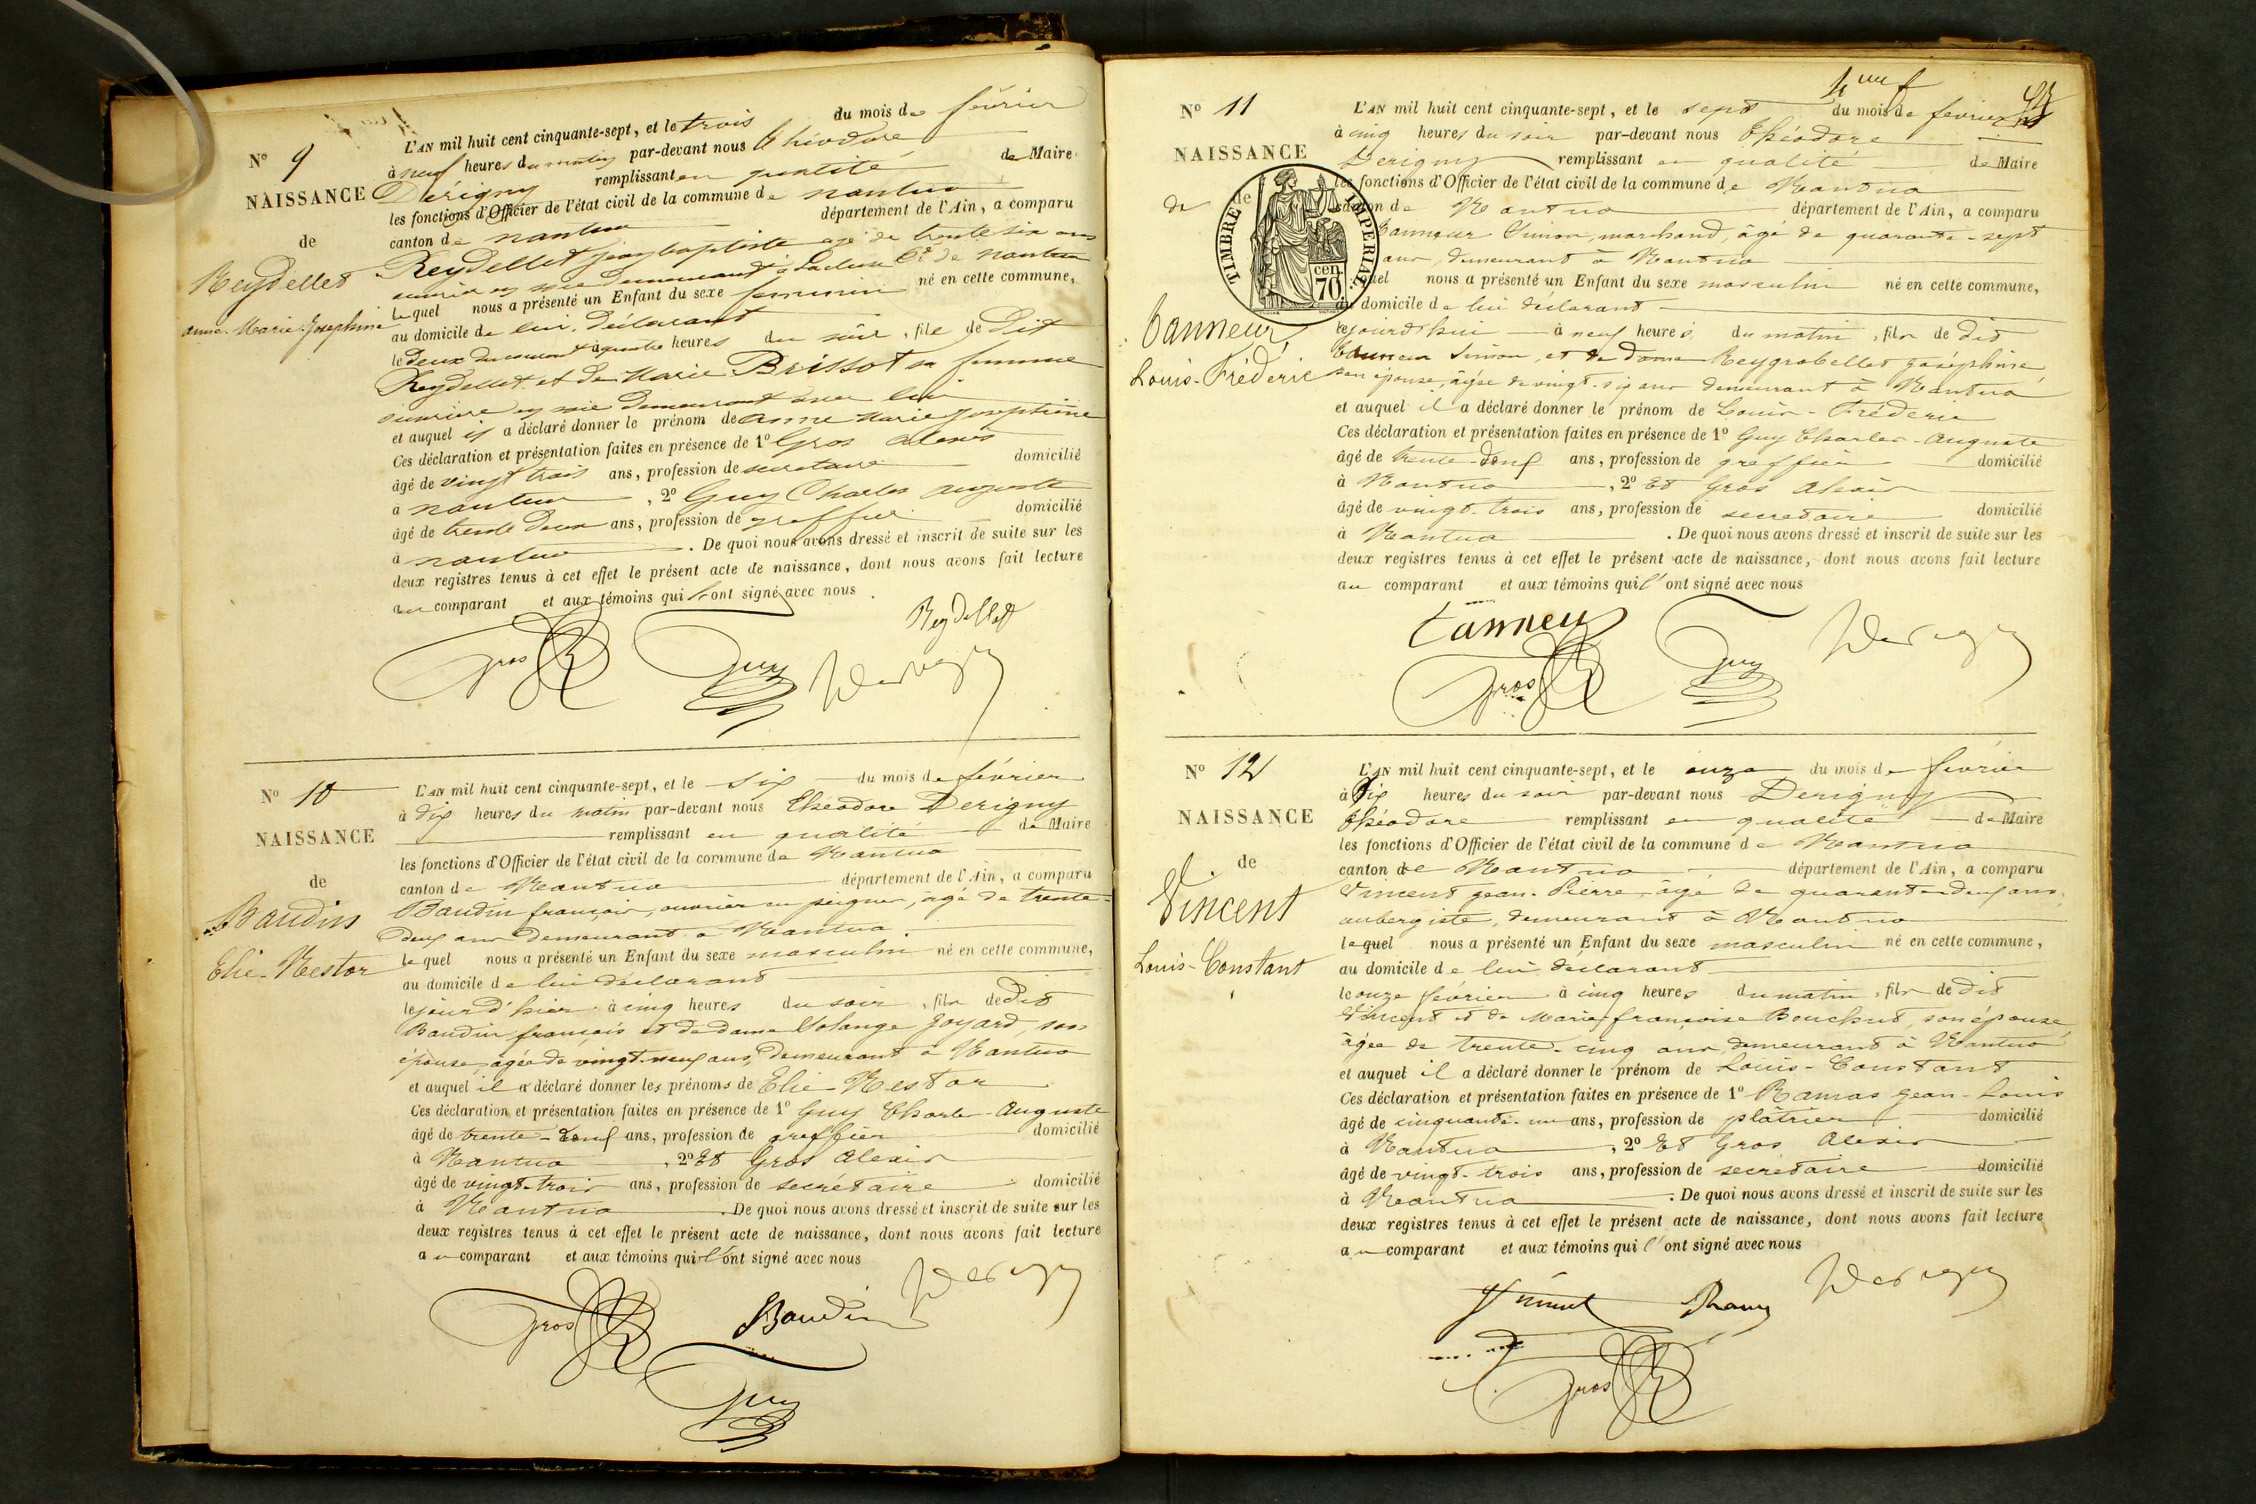 N° 9
NAISSANCE
de
Reydellet
Anne-Marie-Josephine
L'AN mil huit cent cinquante-sept, et le trois du mois de février
à neuf heures du matin par-devant nous Théodore
Dérigny remplissant en qualité de Maire
les fonctions d'Officier de l'état civil de la commune de nantua
canton de nantua département de l'Ain, a comparu
Reydellet jean baptiste agé de trente six ans
ouvrier en soie demeurant à Laclune Cne de nantua
lequel nous a présenté un Enfant du sexe feminin né en cette commune,
au domicile de lui déclarant
le deux du courant à quatre heures du soir, file de Dit
Reydellet et de Marie Brissot sa femme
ouvriere en soie demeurant avec lui
et auquel il a déclaré donner le prénom de anne Marie Josephine
Ces déclaration et présentation faites en présence de 1° Gros alexis
âgé de vingt trois ans, profession de secretaire domicilié
à nantua, 2° Guy Charles auguste
âgé de trente deux ans, profession de greffier domicilié
à nantua. De quoi nous avons dressé et inscrit de suite sur les
deux registres tenus à cet effet le présent acte de naissance, dont nous avons fait lecture
au comparant et aux témoins qui l'ont signé avec nous.
Reydellet
Gros Guy Derigny
N° 10
NAISSANCE
de
Baudin
Elie-Nestor
L'AN mil huit cent cinquante-sept, et le six du mois de février
à dix heures du matin par-devant nous Théodore Derigny
remplissant en qualité de Maire
les fonctions d'Officier de l'état civil de la commune de Nantua
canton de Nantua département de l'Ain, a comparu
Baudin françois, ouvrier en peignes, âgé de trente-
deux ans demeurant à Nantua
lequel nous a présenté un Enfant du sexe masculin né en cette commune,
au domicile de lui déclarant
le jour d'hier à cinq heures du soir, fils de Dit
Baudin françois et de dame Volange Joyard, son
épouse, âgée de vingt-neuf ans, demeurant à Nantua
et auquel il a déclaré donner les prénoms de Elie-Nestor
Ces déclaration et présentation faites en présence de 1° Guy Charles-Auguste
âgé de trente-deux ans, profession de greffier domicilié
à Nantua, 2° Et Gros Alexis
âgé de vingt-trois ans, profession de secrétaire domicilié
à Nantua. De quoi nous avons dressé et inscrit de suite sur les
deux registres tenus à cet effet le présent acte de naissance, dont nous avons fait lecture
au comparant et aux témoins qui l'ont signé avec nous
Gros Baudin Derigny
Guy
N° 11
NAISSANCE
de
TIMBRE IMPERIAL
70 cen.
Tanneur,
Louis-Fréderic
L'AN mil huit cent cinquante-sept, et le sept du mois de fevrier
à cinq heures du soir par-devant nous Théodore
Derigny remplissant en qualité de Maire
les fonctions d'Officier de l'état civil de la commune de Nantua
canton de Nantua département de l'Ain, a comparu
Tanneur Simon, marchand, âgé de quarante-sept
ans, demeurant à Nantua
lequel nous a présenté un Enfant du sexe masculin né en cette commune,
au domicile de lui déclarant
cejourd'hui à neuf heures du matin, fils de dit
Tanneur Simon, et de Dame Reygrobellet Joséphine
son épouse, âgée de vingt-six ans demeurant à Nantua
et auquel il a déclaré donner le prénom de Louis-Fréderic
Ces déclaration et présentation faites en présence de 1° Guy Charles-Auguste
âgé de trente-deux ans, profession de greffier domicilié
à Nantua, 2° Et Gros Alexis
âgé de vingt-trois ans, profession de secrétaire domicilié
à Nantua. De quoi nous avons dressé et inscrit de suite sur les
deux registres tenus à cet effet le présent acte de naissance, dont nous avons fait lecture
au comparant et aux témoins qui l'ont signé avec nous
Tanneur Derigny
Gros Guy
N° 12
NAISSANCE
de
Vincent
Louis-Constant
L'AN mil huit cent cinquante-sept, et le onze du mois de février
à Six heures du soir par-devant nous Derigny
Théodore remplissant en qualité de Maire
les fonctions d'Officier de l'état civil de la commune de Nantua
canton de Nantua département de l'Ain, a comparu
Vincent jean-Pierre, âgé de quarante-deux ans,
aubergiste, demeurant à Nantua
lequel nous a présenté un Enfant du sexe masculin né en cette commune,
au domicile de lui déclarant
le onze février à cinq heures du matin, fils de dit
Vincent et de Marie-françoise Bouchut, son épouse,
âgée de trente-cinq ans, demeurant à Nantua
et auquel il a déclaré donner le prénom de Louis-Constant
Ces déclaration et présentation faites en présence de 1° Ramas Jean-Louis
âgé de cinquante-un ans, profession de plâtrier domicilié
à Nantua, 2° Et Gros Alexis
âgé de vingt-trois ans, profession de secrétaire domicilié
à Nantua. De quoi nous avons dressé et inscrit de suite sur les
deux registres tenus à cet effet le présent acte de naissance, dont nous avons fait lecture
au comparant et aux témoins qui l'ont signé avec nous
Vincent Derigny
Gros